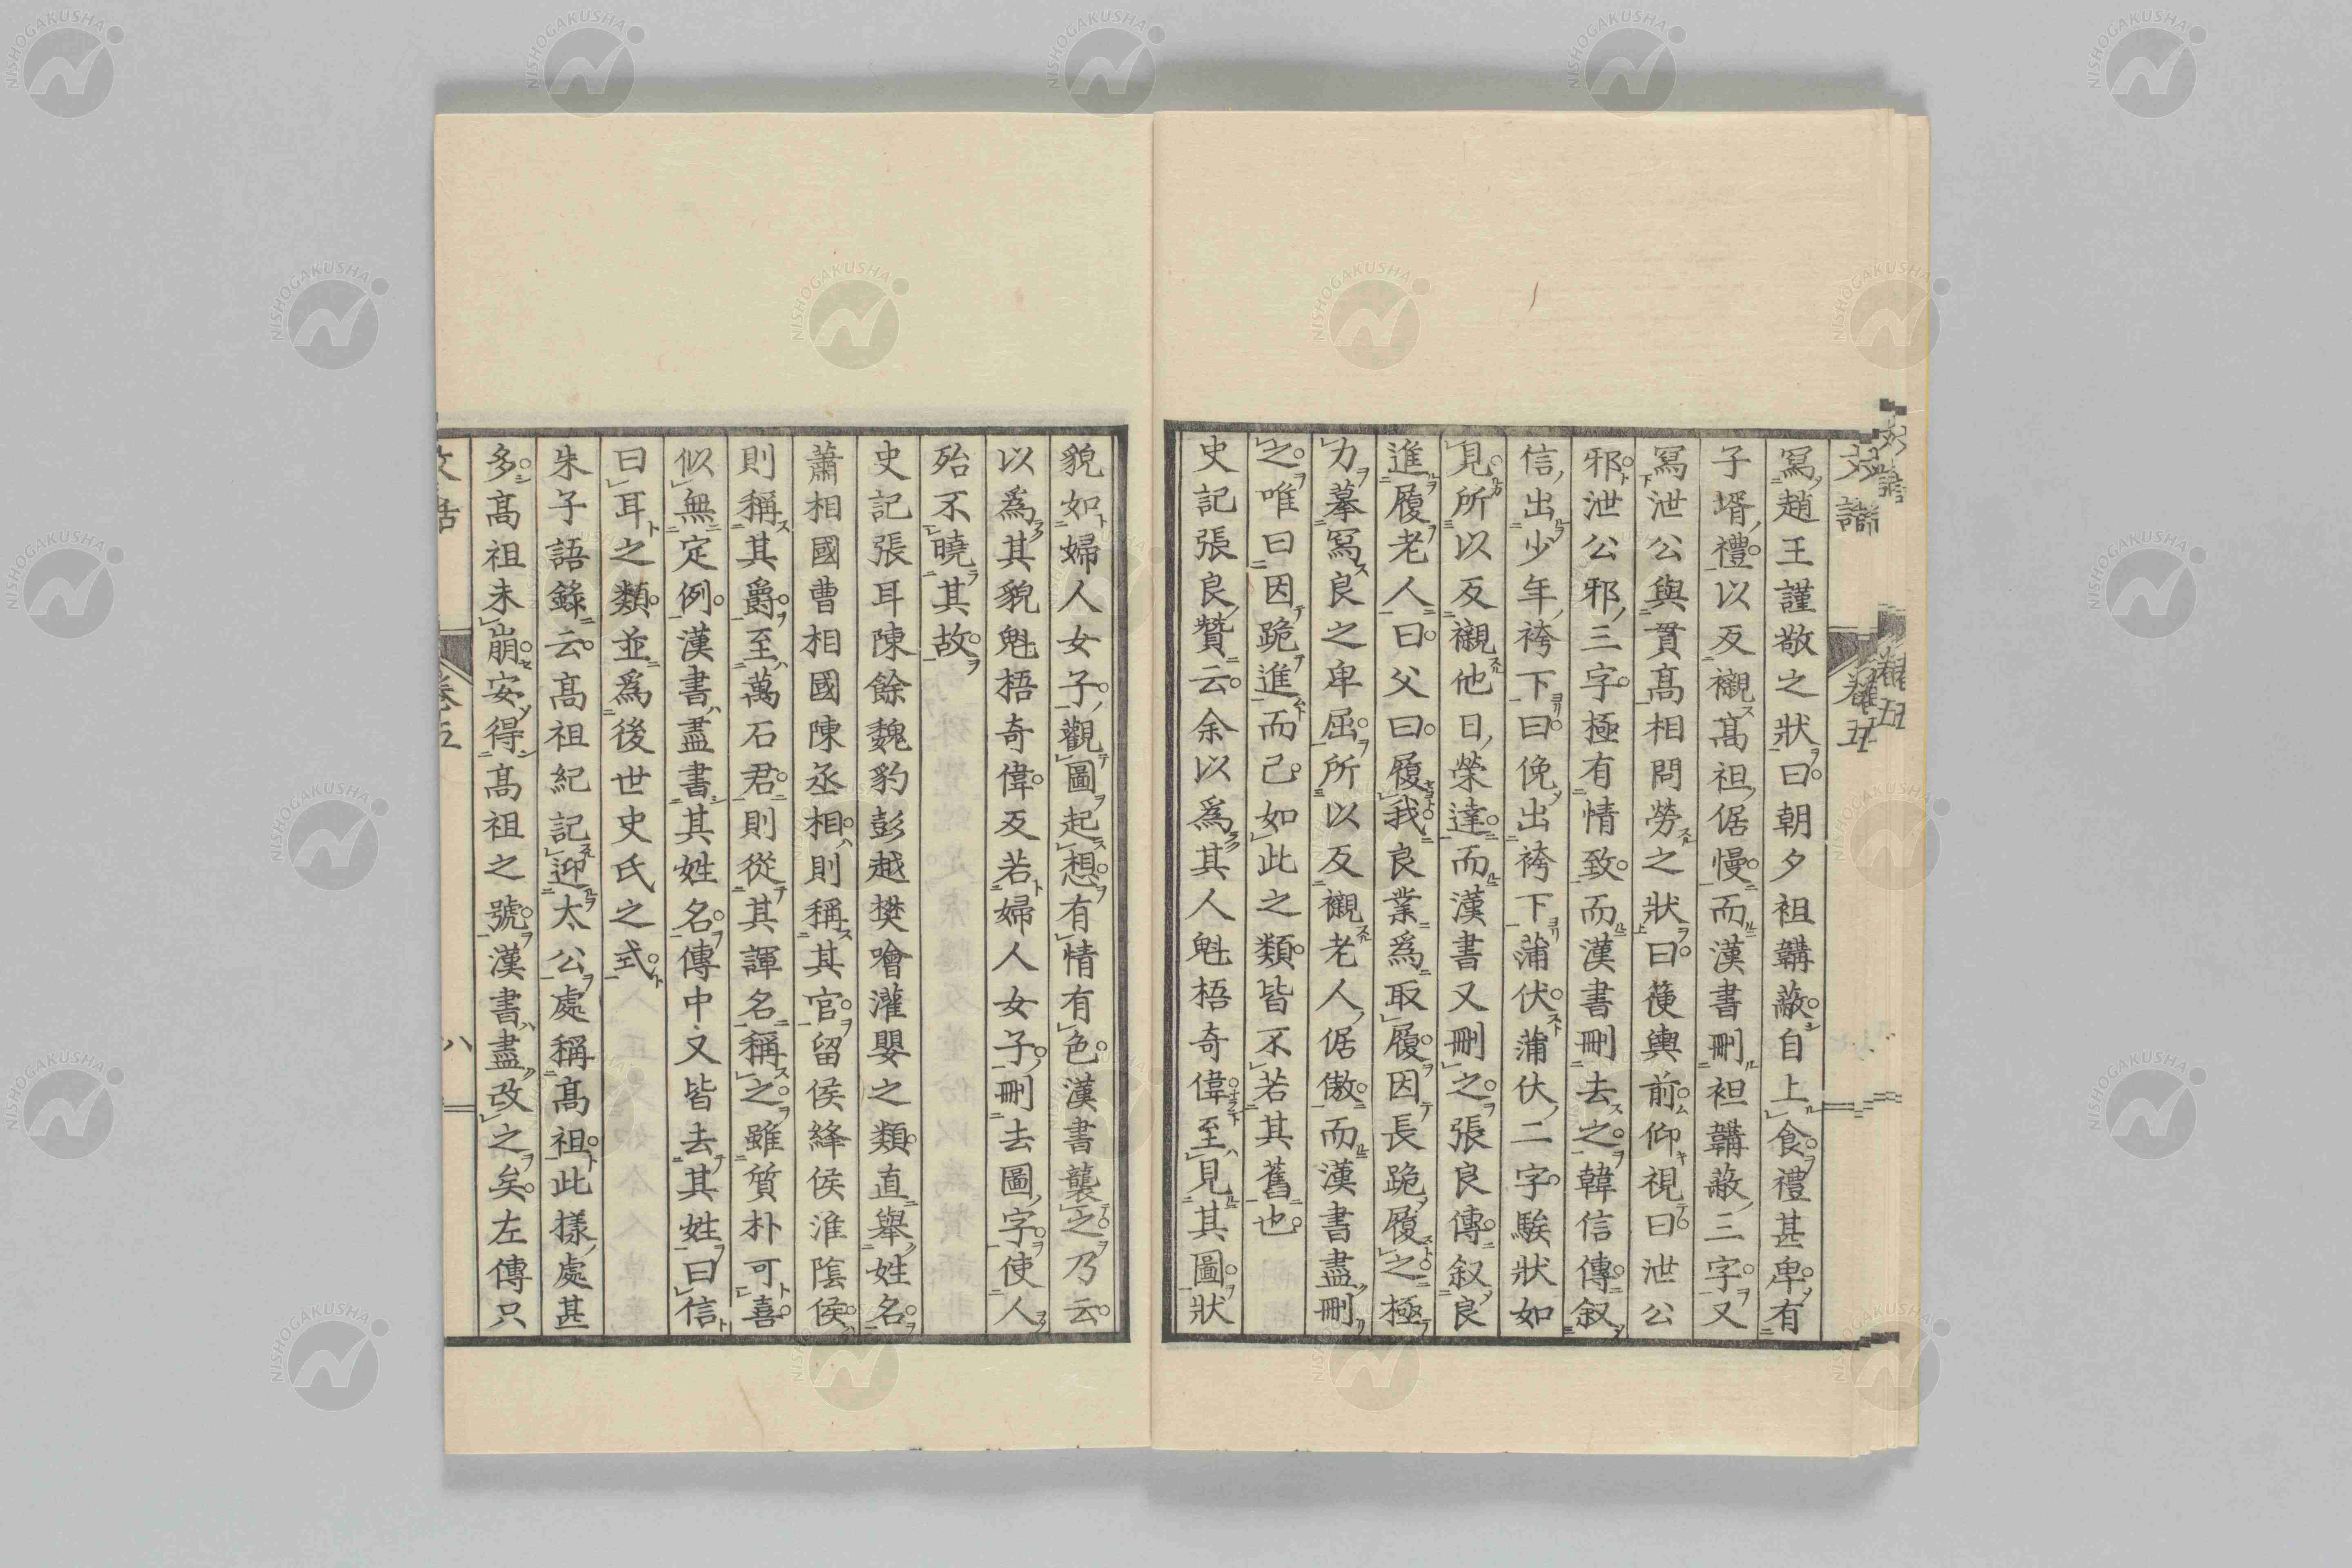 寫趙王謹敬之狀曰朝夕袒韝蔽自上食禮甚卑有
子壻禮以反襯高祖倨慢而漢書刪袒韝蔽三字又
寫泄公與貫高相問勞之狀曰箯輿前仰視曰泄公
邪泄公邪三字極有情致而漢書刪去之韓信傳叙
信出少年袴下曰俛出袴下蒲伏蒲伏二字騃狀如
見所以反襯他日榮達而漢書又刪之張良傳叙良
進履老人曰父曰履我良業爲取履因長跪履之極
力摹寫良之卑屈所以反襯老人倨傲而漢書盡刪
之唯曰因跪進而已如此之類皆不若其舊也
史記張良贊云余以爲其人魁梧奇偉至見其圖狀
貌如婦人女子觀圖起想有情有色漢書襲之乃云
以爲其貌魁梧奇偉反若婦人女子刪去圖字使人
殆不曉其故
史記張耳陳餘魏豹彭越樊噲灌嬰之類直舉姓名
蕭相國曹相國陳丞相則稱其官留侯絳侯淮陰侯
則稱其爵至萬石君則從其諢名稱之雖質朴可喜
似無定例漢書盡書其姓名傳中又皆去其姓曰信
曰耳之類並爲後世史氏之式
朱子語錄云高祖紀記迎太公處稱高祖此樣處甚
多高祖未崩安得高祖之號漢書盡改之矣左傳只
卷五
八